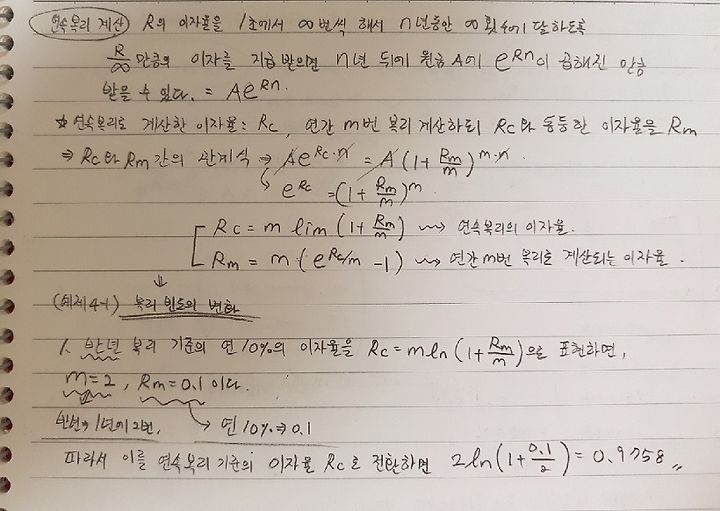 연속복리 계산 R의 이자율을 1초에서 ∞번씩 해서 n년동안 ∞횟수에 달하도록
R/∞ 만큼의 이자를 지급 받으면 n년 뒤에 원금 A에 e^Rn이 곱해진 만큼
받을 수 있다. = Ae^Rn.
* 연속복리로 계산한 이자율: Rc, 연간 m번 복리 계산하되 Rc와 동등한 이자율을 Rm
⇒ Rc와 Rm 간의 관계식 → Ae^Rc·n = A(1+Rm/m)^m·n.
e^Rc = (1+Rm/m)^m
Rc = m lim (1+Rm/m) ⇝ 연속복리의 이자율.
Rm = m(e^Rc/m -1) ⇝ 연간 m번 복리로 계산되는 이자율.
(예제 4-1) 복리 빈도의 변화
1. 반년 복리 기준의 연 10%의 이자율을 Rc = m ln (1+Rm/m)으로 표현하면,
m=2, Rm=0.1 이다.
1년에 2번, 연 10% ⇒ 0.1
따라서 이를 연속복리 기준의 이자율 Rc로 전환하면 2ln(1+0.1/2) = 0.9758〃